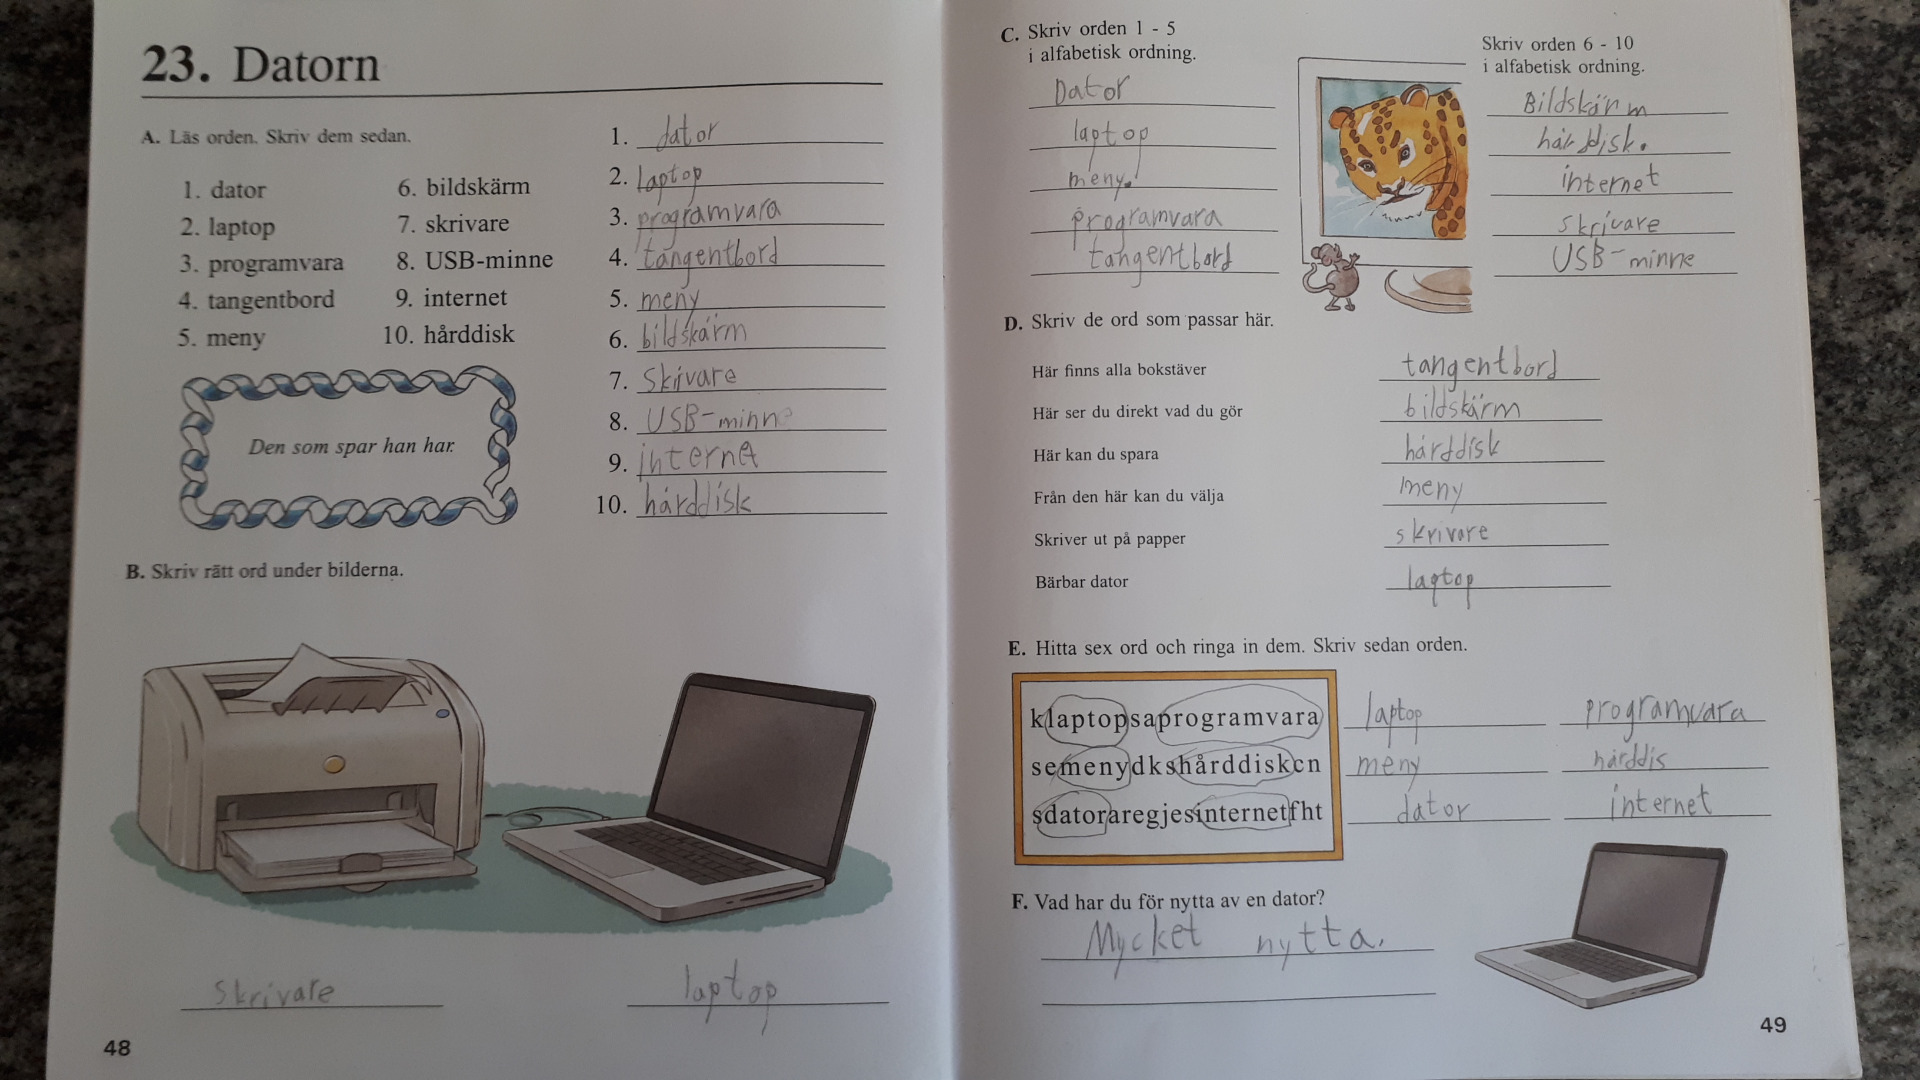 23. Datorn
A. Läs orden. Skriv dem sedan.
1. dator
2. laptop
3. programvara
4. tangentbord
5. meny
6. bildskärm
7. skrivare
8. USB-minne
9. internet
10. hårddisk
Den som spar han har.
1. dator
2. laptop
3. programvara
4. tangentbord
5. meny
6. bildskärm
7. skrivare
8. USB-minne
9. internet
10. hårddisk
B. Skriv rätt ord under bilderna.
skrivare
laptop
48
C. Skriv orden 1 - 5
i alfabetisk ordning.
Dator
laptop
meny.
programvara
tangentbord
Skriv orden 6 - 10
i alfabetisk ordning.
Bildskärm
hårddisk.
internet
skrivare
USB-minne
D. Skriv de ord som passar här.
Här finns alla bokstäver tangentbord
Här ser du direkt vad du gör bildskärm
Här kan du spara hårddisk
Från den här kan du välja meny
Skriver ut på papper skrivare
Bärbar dator laptop
E. Hitta sex ord och ringa in dem. Skriv sedan orden.
klaptopsaprogramvara
semenydkshårddiskcn
sdatoraregjesinternetfht
laptop programvara
meny hårddis
dator internet
F. Vad har du för nytta av en dator?
Mycket nytta.
49